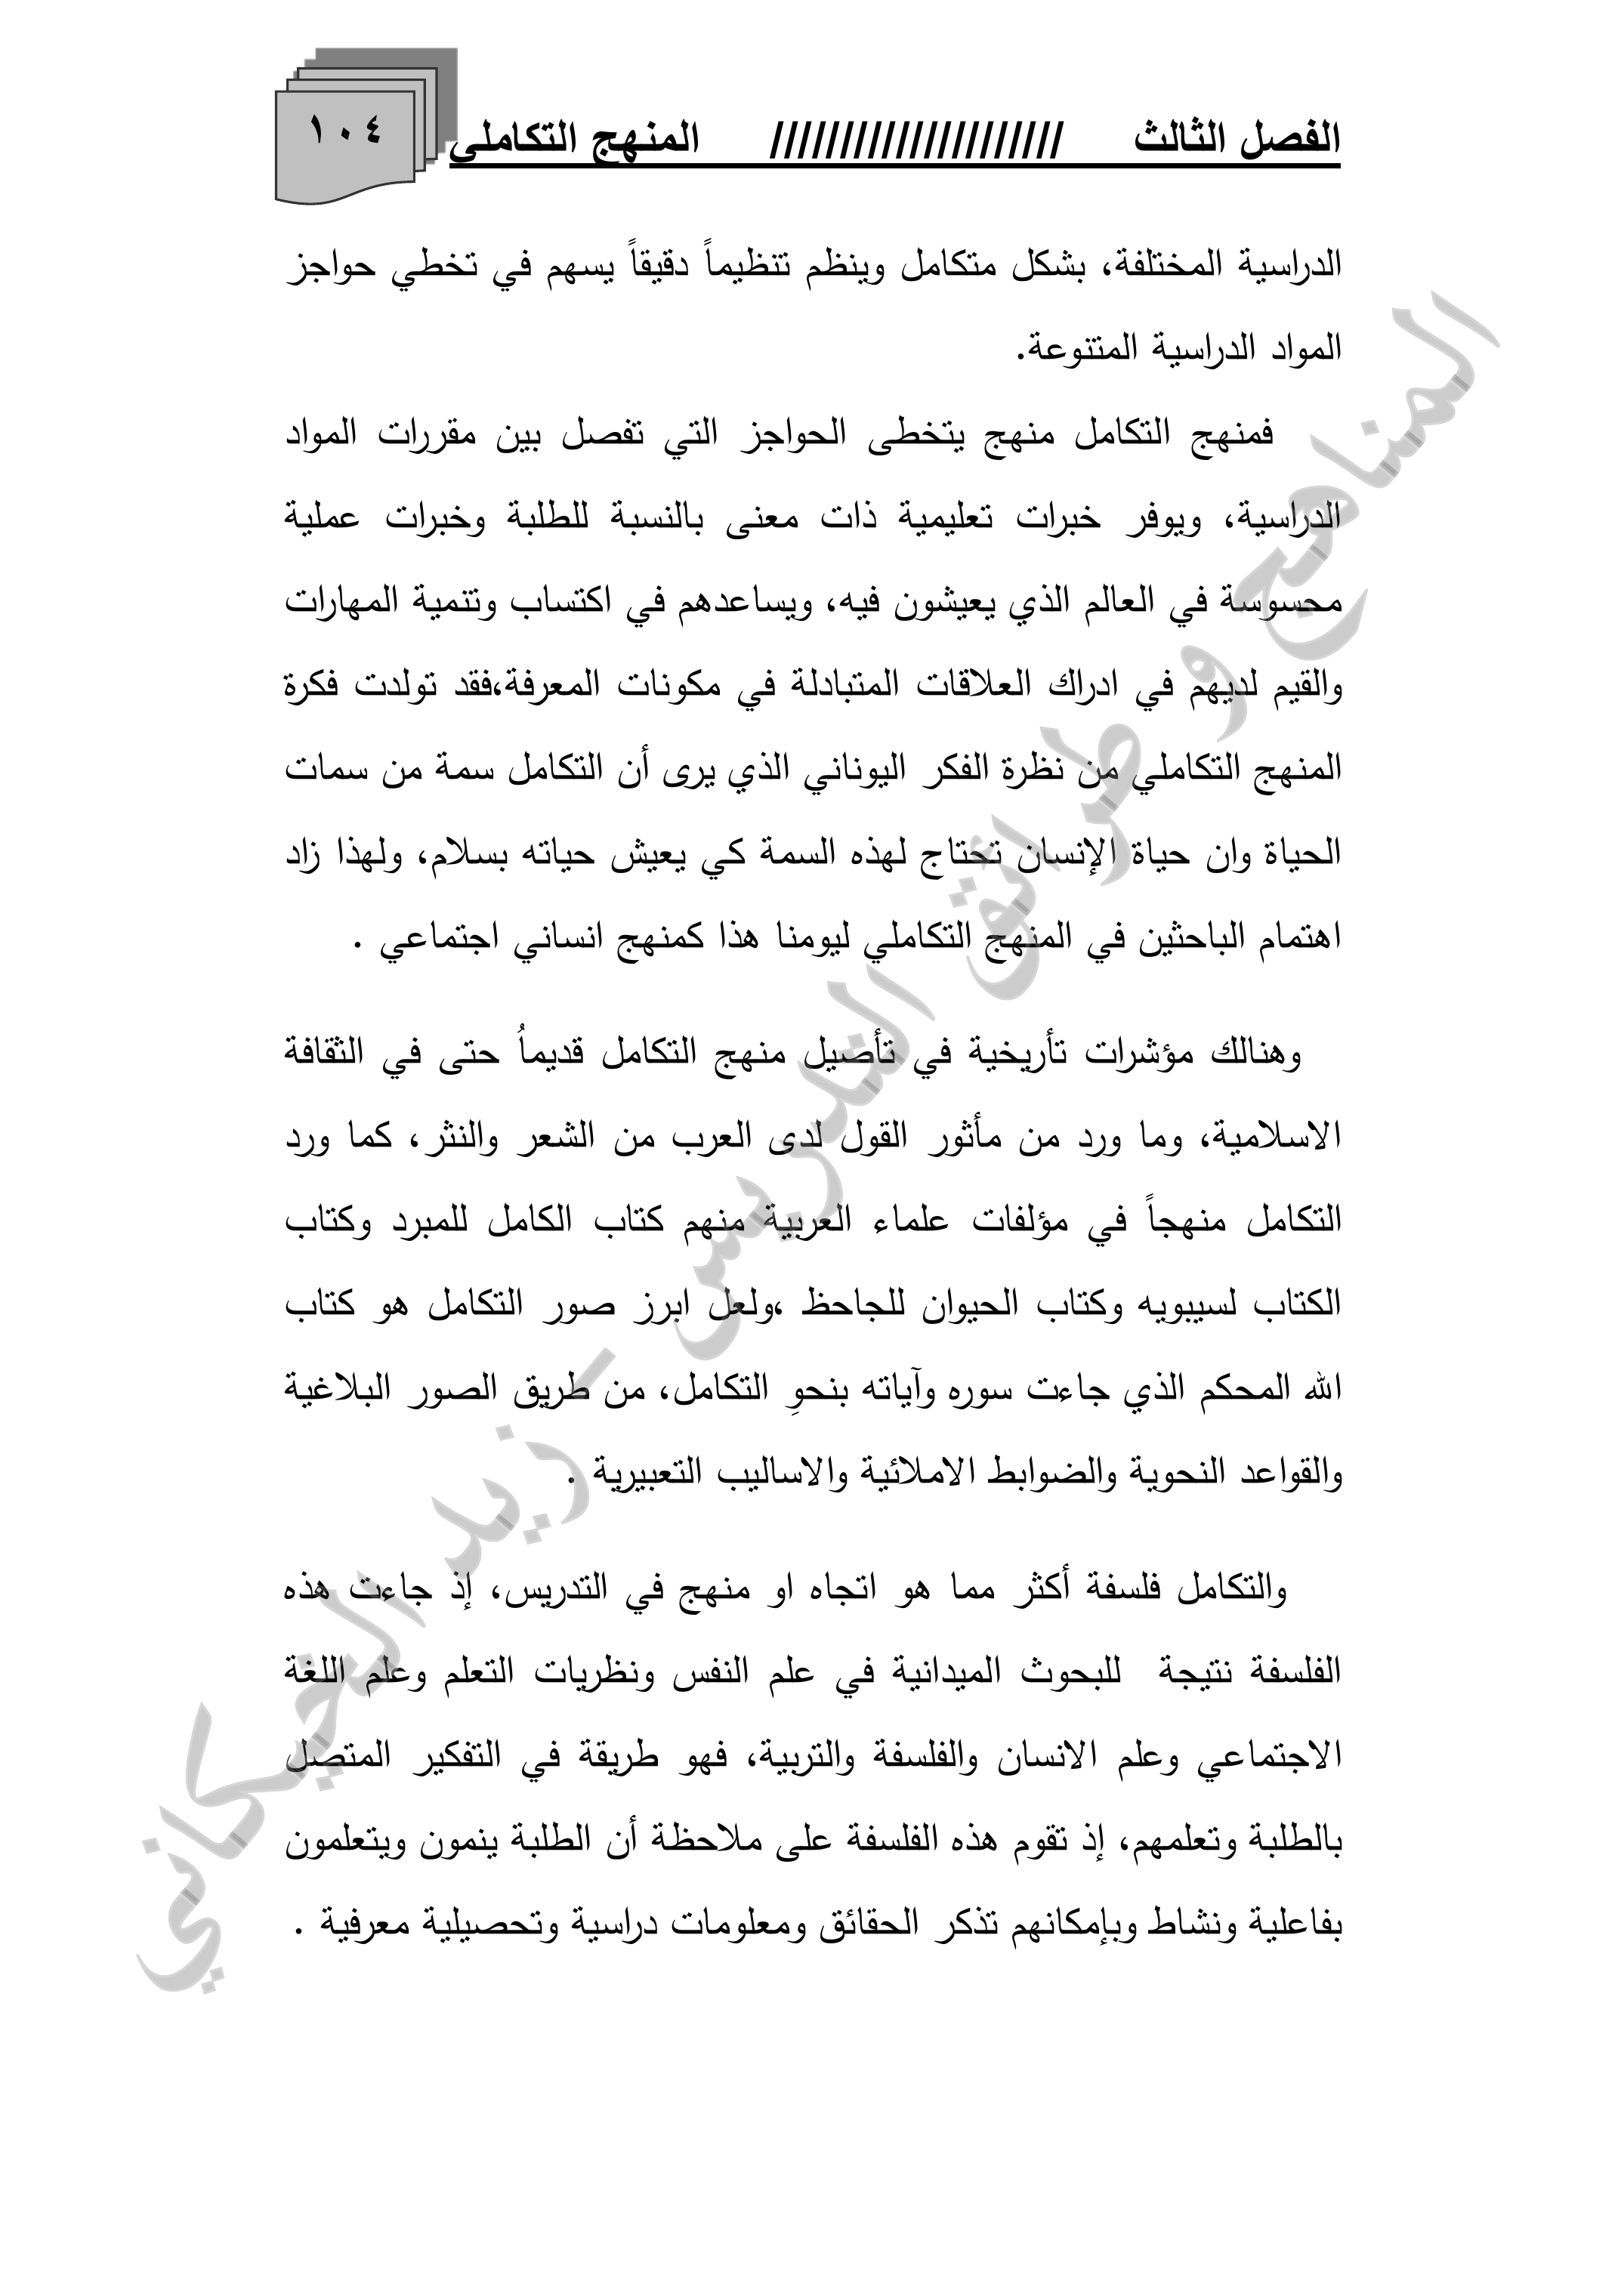 الفصل الثالث ///////////////////// المنهج التكاملي ١٠٤
الدراسية المختلفة، بشكل متكامل وينظم تنظيماً دقيقاً يسهم في تخطي حواجز
المواد الدراسية المتنوعة.
فمنهج التكامل منهج يتخطى الحواجز التي تفصل بين مقررات المواد
الدراسية، ويوفر خبرات تعليمية ذات معنى بالنسبة للطلبة وخبرات عملية
محسوسة في العالم الذي يعيشون فيه، ويساعدهم في اكتساب وتنمية المهارات
والقيم لديهم في ادراك العلاقات المتبادلة في مكونات المعرفة،فقد تولدت فكرة
المنهج التكاملي من نظرة الفكر اليوناني الذي يرى أن التكامل سمة من سمات
الحياة وان حياة الإنسان تحتاج لهذه السمة كي يعيش حياته بسلام، ولهذا زاد
اهتمام الباحثين في المنهج التكاملي ليومنا هذا كمنهج انساني اجتماعي .
وهنالك مؤشرات تأريخية في تأصيل منهج التكامل قديماُ حتى في الثقافة
الاسلامية، وما ورد من مأثور القول لدى العرب من الشعر والنثر، كما ورد
التكامل منهجاً في مؤلفات علماء العربية منهم كتاب الكامل للمبرد وكتاب
الكتاب لسيبويه وكتاب الحيوان للجاحظ ،ولعل ابرز صور التكامل هو كتاب
الله المحكم الذي جاءت سوره وآياته بنحوِ التكامل، من طريق الصور البلاغية
والقواعد النحوية والضوابط الاملائية والاساليب التعبيرية .
والتكامل فلسفة أكثر مما هو اتجاه او منهج في التدريس، إذ جاءت هذه
الفلسفة نتيجة للبحوث الميدانية في علم النفس ونظريات التعلم وعلم اللغة
الاجتماعي وعلم الانسان والفلسفة والتربية، فهو طريقة في التفكير المتصل
بالطلبة وتعلمهم، إذ تقوم هذه الفلسفة على ملاحظة أن الطلبة ينمون ويتعلمون
بفاعلية ونشاط وبإمكانهم تذكر الحقائق ومعلومات دراسية وتحصيلية معرفية .
المناهج و طرائق التدريس - زيد الخيكاني